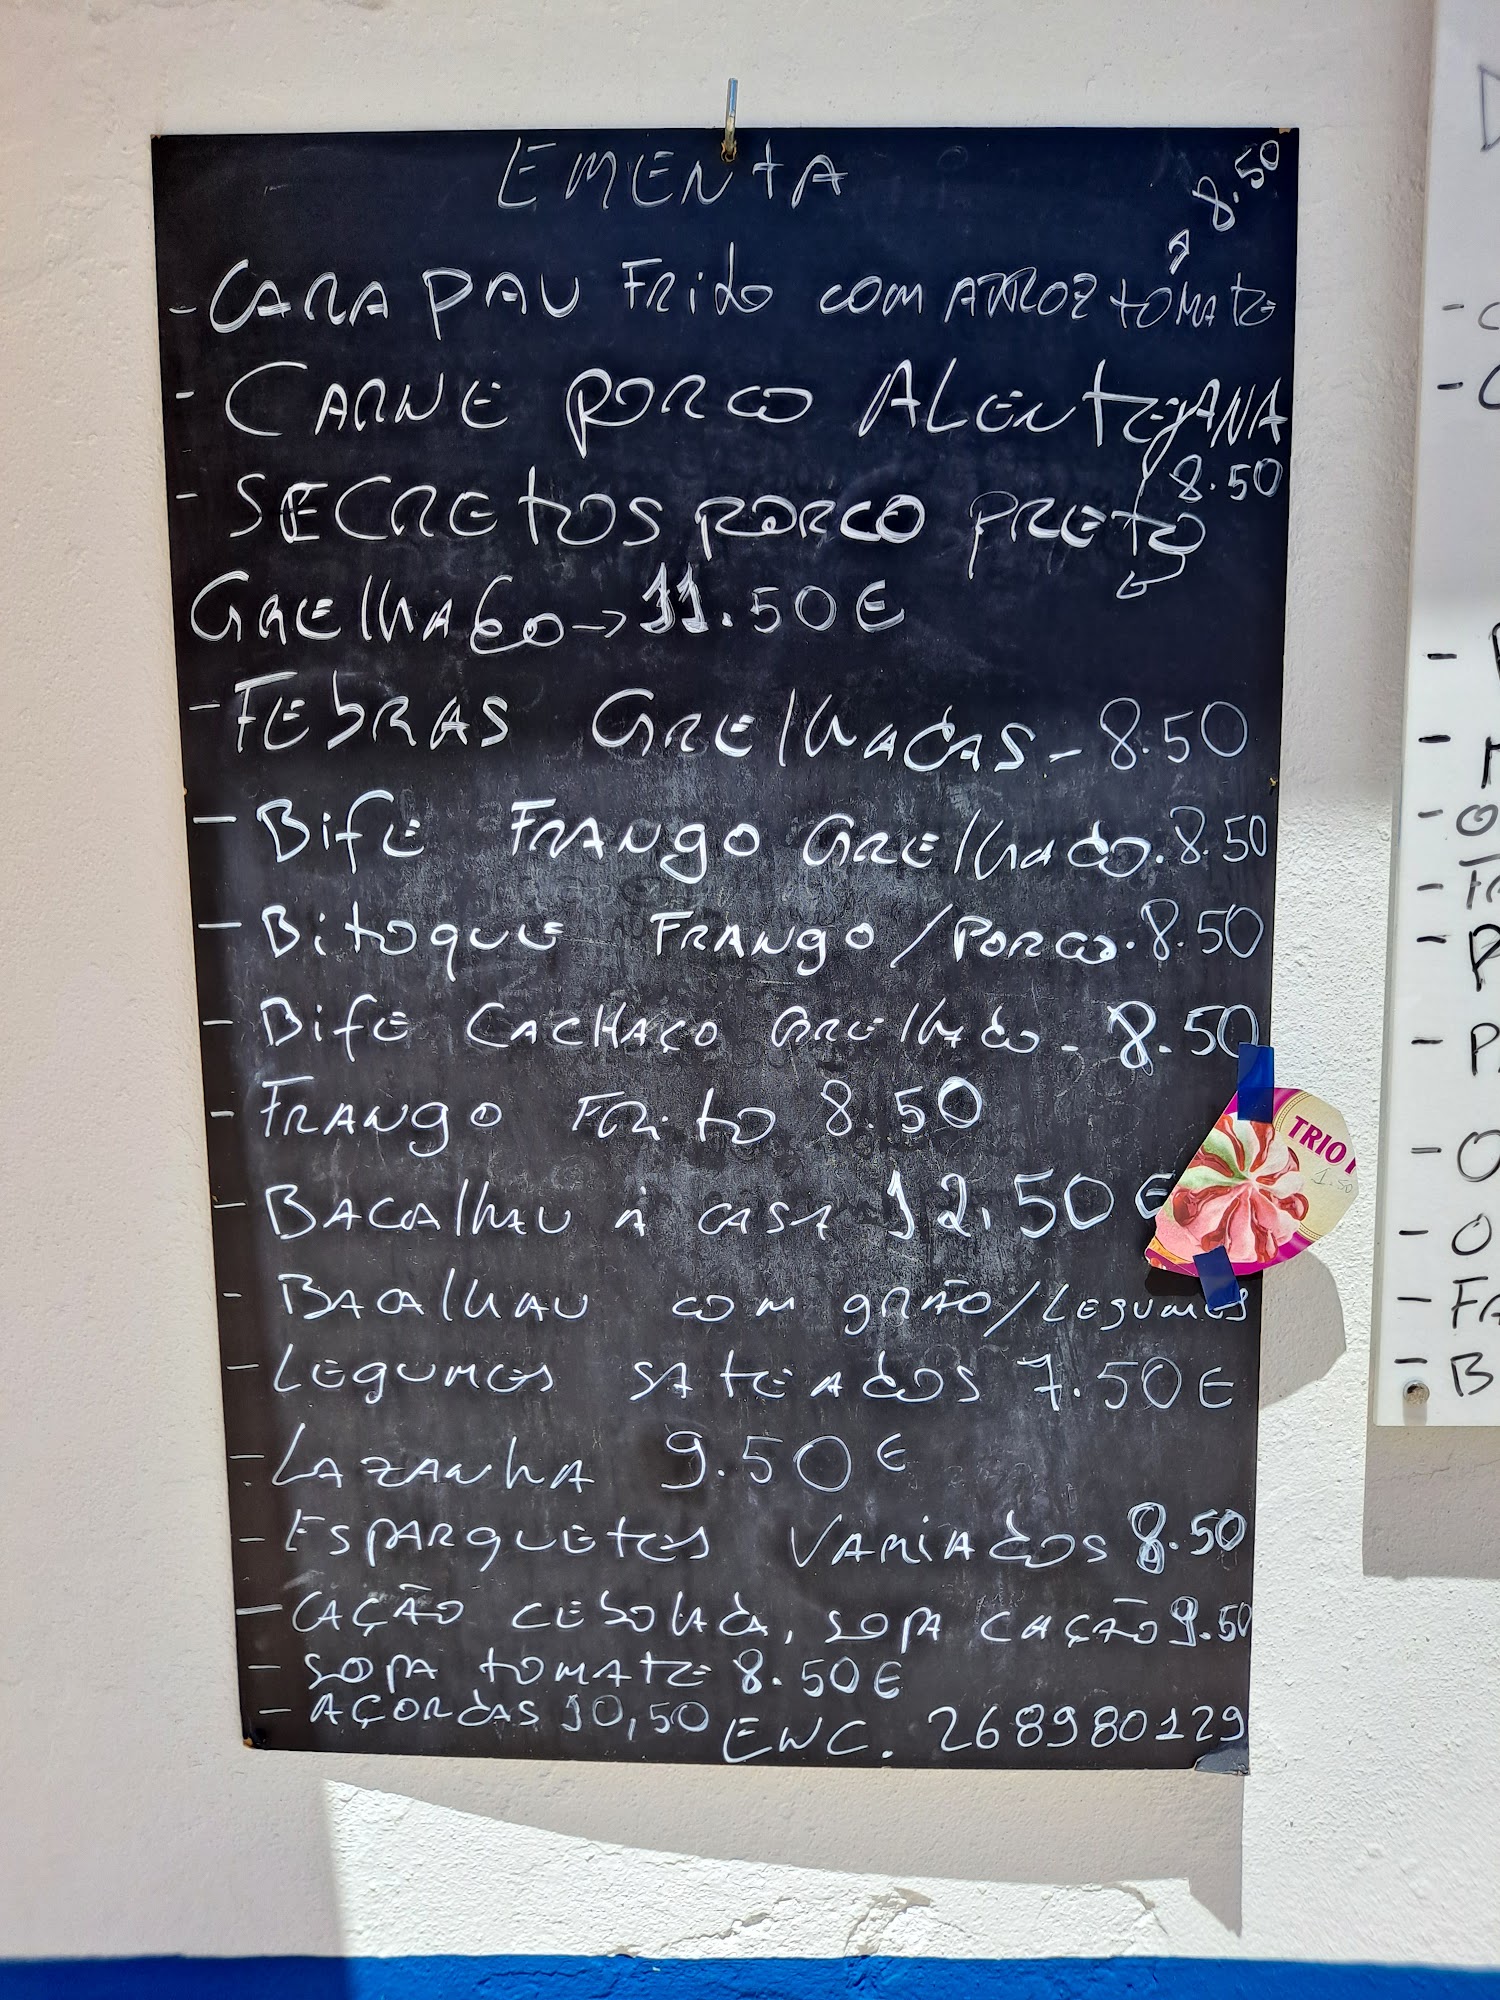 EMENTA
8.50
- CARAPAU FRITO COM ARROZ TOMATE
- CARNE PORCO ALENTEJANA
8.50
- SECRETOS PORCO PRETO
GRELHADO → 11.50€
- FEBRAS GRELHADAS - 8.50
- BIFE FRANGO GRELHADO. 8.50
- BITOQUE FRANGO/PORCO. 8.50
- BIFE CACHAÇO GRELHADO - 8.50
- FRANGO FRITO 8.50
- BACALHAU À CASA 12.50€
TRIO
1.50
- BACALHAU COM GRÃO/LEGUMES
- LEGUMES SATEADOS 7.50€
- LAZANHA 9.50€
- ESPARGUETES VARIADOS 8.50
- CAÇÃO CEBOLADA, SOPA CAÇÃO 9.50
- SOPA TOMATE 8.50€
- AÇORDAS 10,50
ENC. 268980129